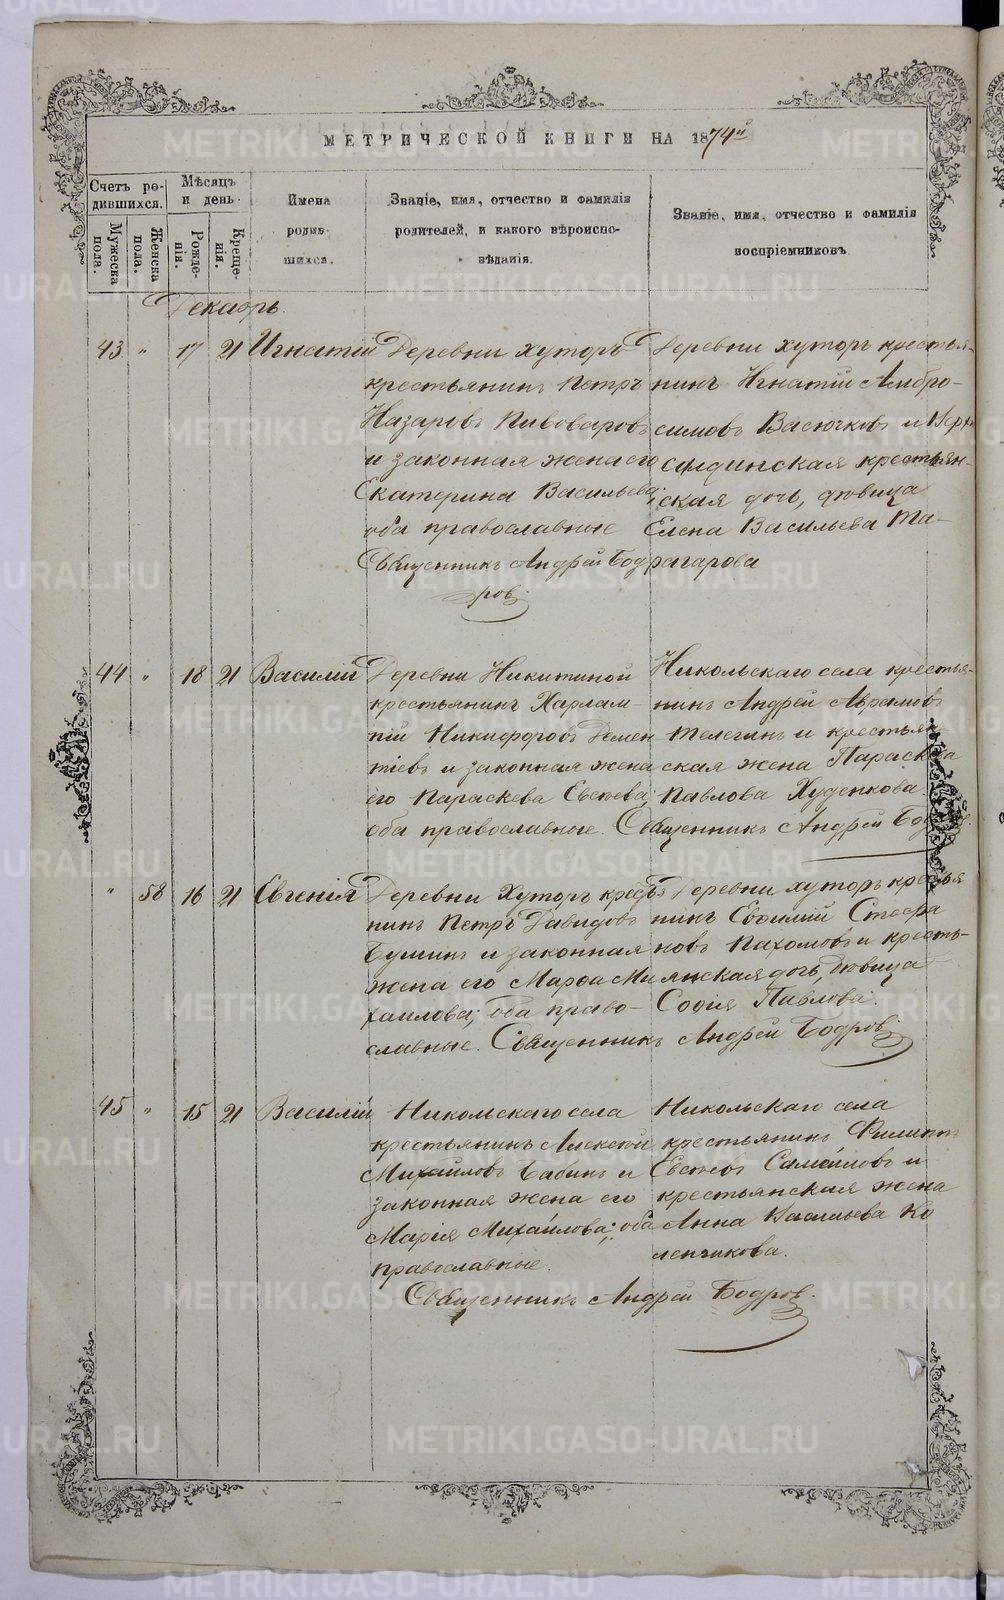 МЕТРИЧЕСКОЙ КНИГИ НА 1874й
Счетъ ро-
дившихся.
Мужеска
пола.
Женска
пола.
Мѣсяцъ
и день.
Рожде-
нія.
Креще-
нія.
Имена
родив-
шихся.
Званіе, имя, отчество и фамилія
родителей, и какого вѣроиспо-
вѣданія.
Званіе, имя, отчество и фамилія
воспріемниковъ.
Декабрь.
43 " 17 21 Игнатій
Деревни Хуторъ
крестьянинъ Петръ
Назаровъ Пивоваровъ
и законная жена его
Екатерина Васильева;
оба православные
Священникъ Андрей Бод
ровъ.
Деревни хуторъ крестья-
нинъ Игнатій Амбро-
симовъ Васючковъ и Верхъ
салдинская крестьян-
ская дочь, дѣвица
Елена Васильева Та-
рагарова
44 " 18 21 Василій
Деревни Никитиной
крестьянинъ Харлам-
пій Никифоровъ Демен
тіевъ и законная жена
его Параскева Евсѣева;
оба православные. Священникъ Андрей Бодровъ.
Никольскаго села крестья-
нинъ Андрей Аврамовъ
Телегинъ и крестьян
ская жена Параскева
Павлова Худенкова
" 58 16 21 Евгенія
Деревни Хуторъ крестья
нинъ Петръ Давидовъ
Бушинъ и законная
жена его Марѳа Ми
хаилова; оба право-
славные. Священникъ Андрей Бодровъ.
Деревни хуторъ крестья
нинъ Евѳимій Стефа
новъ Пахомовъ и кресть-
янская дочь, дѣвица
Софія Павлова.
45 " 15 21 Василій
Никольскаго села
крестьянинъ Алексѣй
Михайловъ Бабинъ и
законная жена его
Марія Михайлова; оба
православные.
Священникъ Андрей Бодровъ.
Никольскаго села
крестьянинъ Филиппъ
Евсѣевъ Самойловъ и
крестьянская жена
Анна Васильева Ко
ленчикова.
METRIKI.GASO-URAL.RU